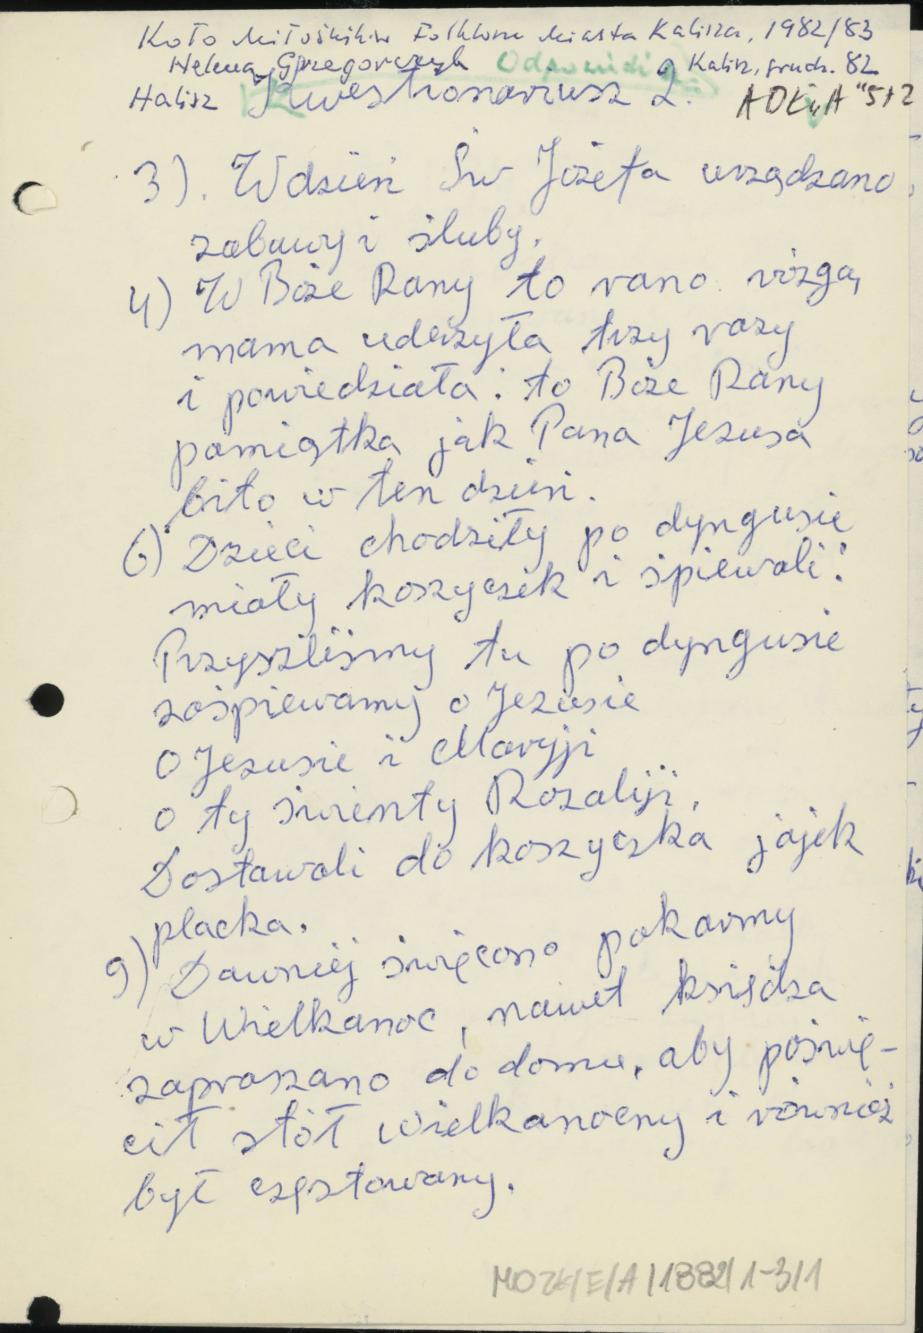 Koło Miłośników Folkloru Miasta Kalisza, 1982/83
Helena Grzegorczyk Odpowiedzi Kalisz, grudz. 82
Halisz Kwestionariusz 2. ADKiA "512
3). W dzień Św Józefa urządzano
zabawy i śluby.
4) W Boże Rany to rano rózgą,
mama uderzyła trzy razy
i powiedziała: to Boże Rany
pamiątka jak Pana Jezusa
bito w ten dzień.
6) Dzieci chodziły po dyngusie
miały koszyczek i śpiewali:
Przyszliśmy tu po dyngusie
zaśpiewamy o Jezusie
O Jezusie i Maryji
o ty świenty Rozaliji.
Dostawali do koszyczka jajek
placka.
9) Dawniej święcono pokarmy
w Wielkanoc, nawet księdza
zapraszano do domu, aby poświę-
cił stół wielkanocny i również
był częstowany.
MOZK/E/A/1882/1-3/1